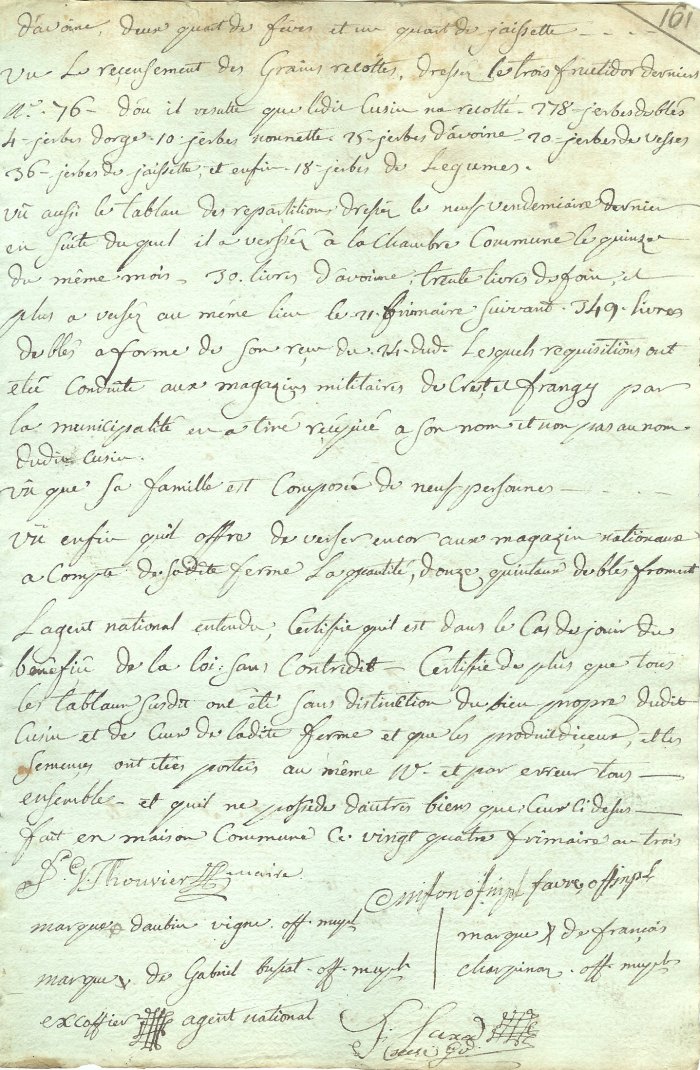 161
d'avoine, deux quart de fèves et un quart de jaissette - - - -
Vu Le recensement des Grains recoltés, dressé le trois fructidor dernier
N.° 76 - dou il resulte que ledit Cusin na recolté - 278 - jerbes de blés
4 - jerbes dorge - 10 - jerbes nonnette - 25 - jerbes d'avoine - 20 - jerbes de vesses
36 - jerbes de jaissette, et enfin - 18 - jerbes de Legumes.
Vû aussi le tablau des repartitions dressez le neuf vendemiaire dernier
en suite du quel il a versséz à la Chambre Commune le quinze
du même mois - 30. livres d'avoine, trente livres de foin, et
plus a versez au même lieu le 21. frimaire suivant - 349. livres
de blés a forme de son reçu du 24. dud. Lesquels requisitions ont
étéé Conduite aux magazins militaires de Crêt, et frangy par
la municipalité en a tiré recépicé a son nom et non pas au nom
dudit Cusin.
Vû que sa famille est Composée de neuf personnes - - - -
Vû enfin quil offre de verser encor aux magazin nationaux
a Compte de sadite ferme La quantité, douze, quintaux de blés froment
Lagent national entendu, Certifie quil est dans le Cas de jouir du
bénéfice de la loi: sans Contredit - Certifie de plus que tous
les tablaux susdit ont étè sans distinction du bien propre dudit
Cusin et de Ceux de ladite ferme et que les produit diceux, et les
semences ont étées portées au même N.° et par erreur tous
ensemble - et quil ne possede dautres biens que Ceux ci desus -
fait en maison Commune Ce vingt quatre frimaire an trois
Thouvier maire
faure, off inpl
marque daubin vigne. off. mupl
marque x de françois
charpinaz. off. mupl
marque x de Gabriel . off. mupl
excoffier agent national